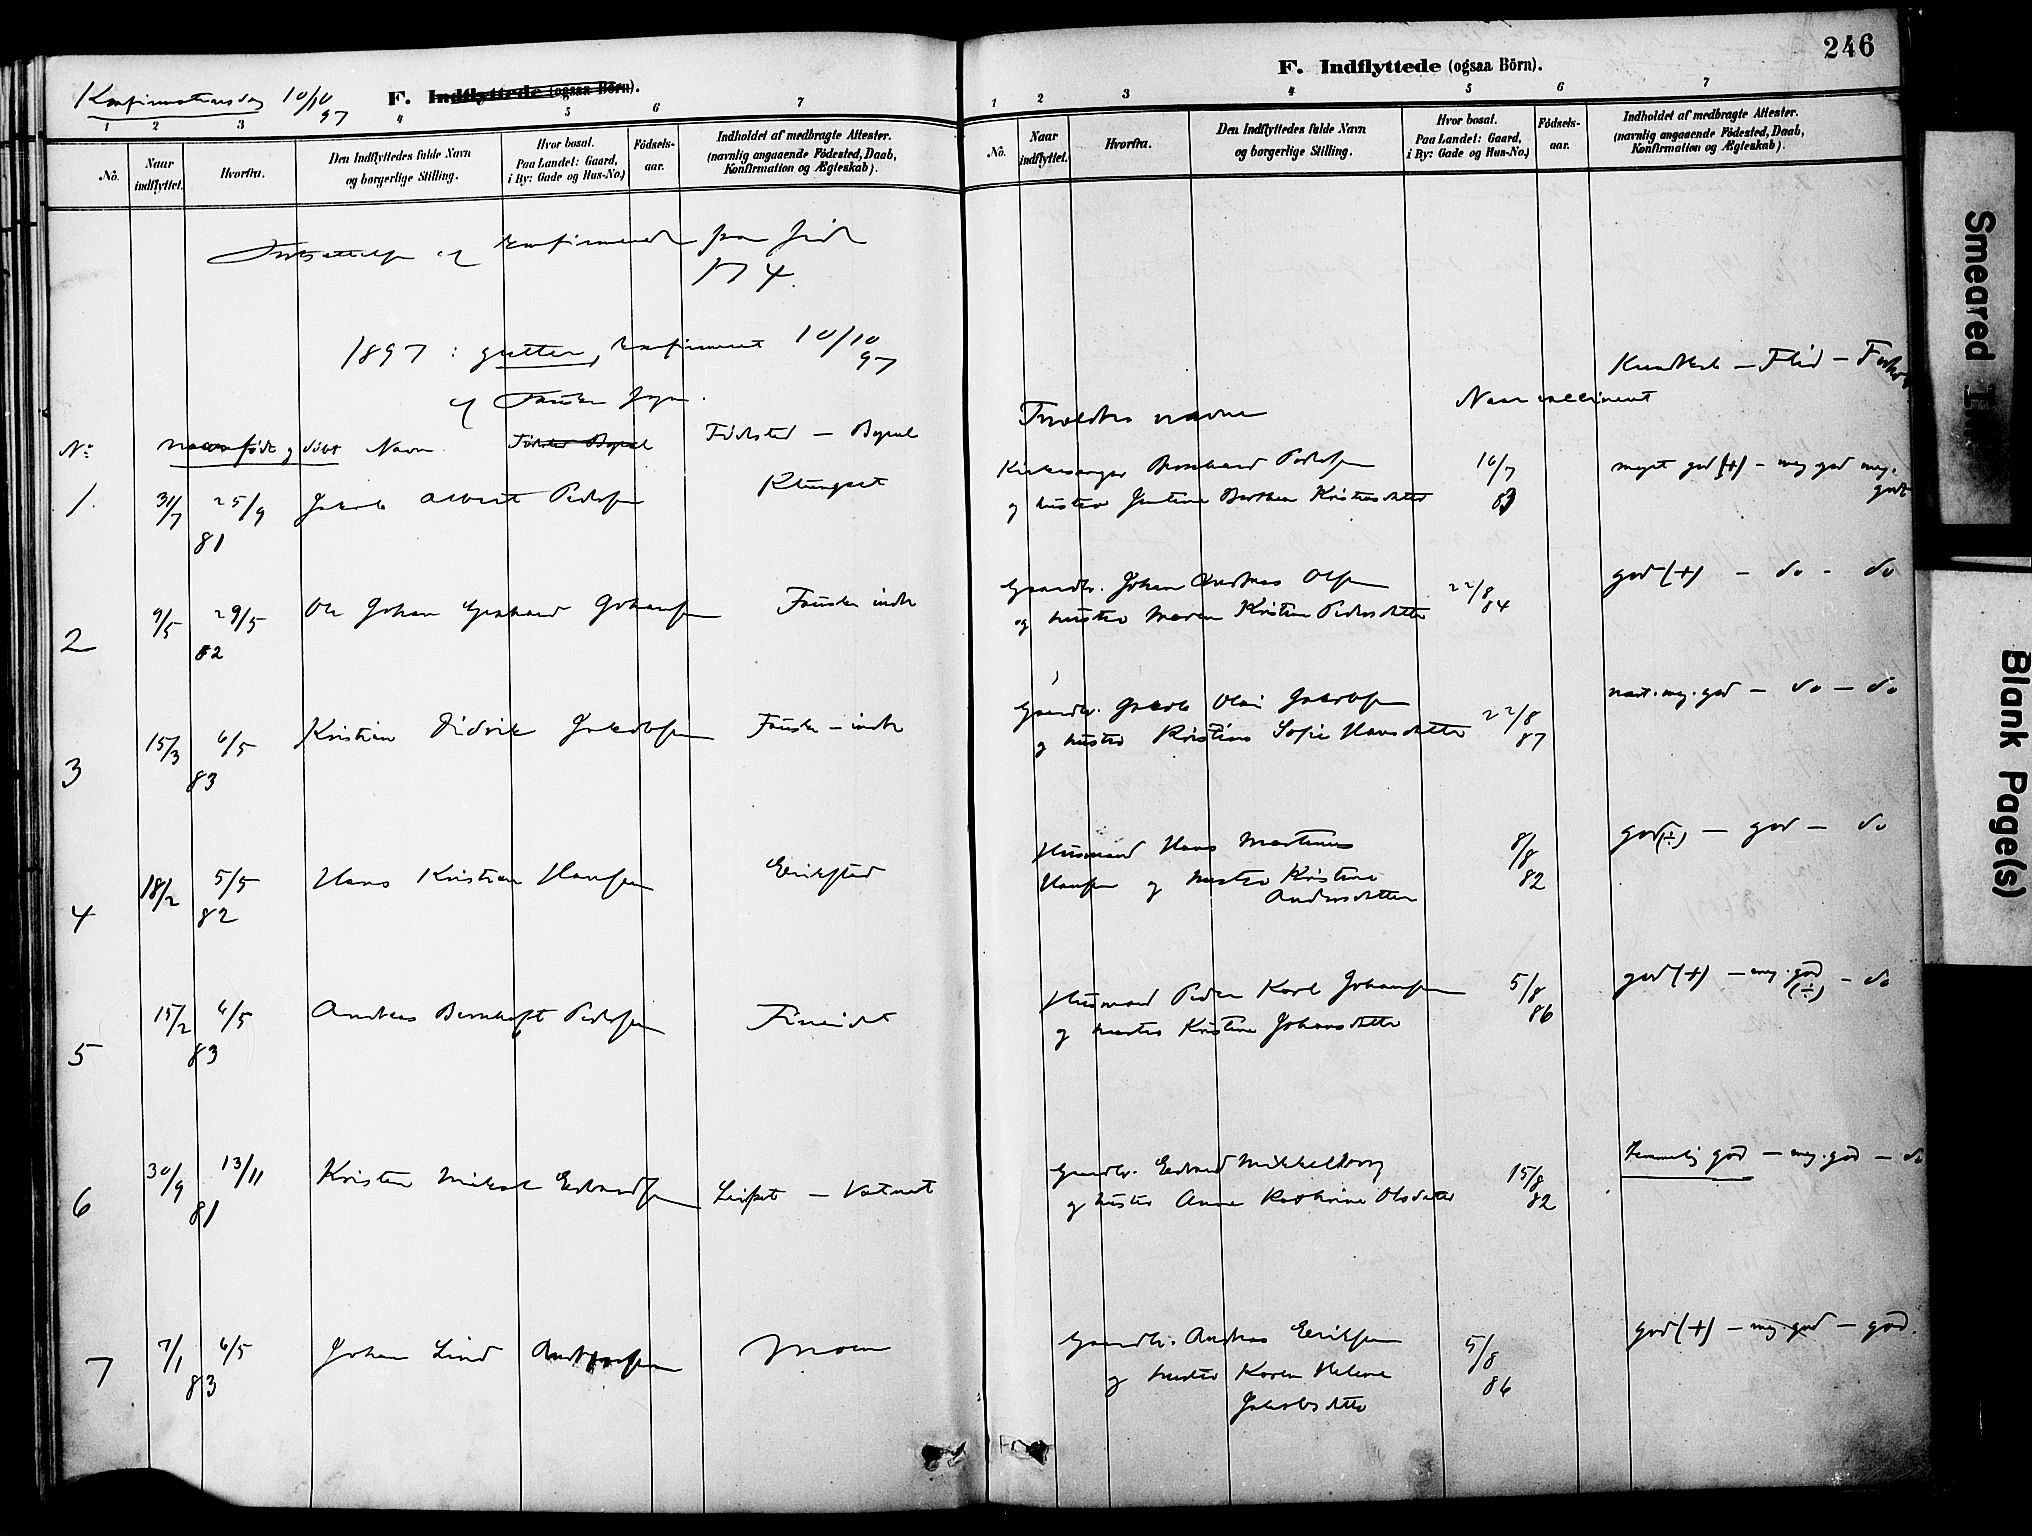 Konfirmationsdag 10/10 97
F. Indflyttede (ogsaa Börn).
1 2 3 4 5 6 7
No. Naar indflyttet. Hvorfra. Den Indflyttedes fulde Navn og borgerlige Stilling. Hvor bosat. Paa Landet: Gaard, i By: Gade og Hus-No.) Fødsels-aar. Indholdet af medbragte Attester. (navnlig angaaende Födested, Daab, Konfirmation og Ægteskab).
Fortsættelse af konfirmerede fra side
174.
1897: gutter, konfirmeret 10/10 97
af Fauske sogn.
No født og döbt Navn Fødested Bopæl Födested – Bopæl
1. 31/7 25/9 81 Jakob Albert Pedersen Klungset
2 9/5 29/5 82 Ole Johan Gerhard Johansen Fauske indre
3 15/3 6/5 83 Kristian Didrik Jakobsen Fauske – indre
4 18/2 5/5 82 Hans Kristian Hansen Erikstad
5 15/2 6/5 83 Andreas Bernhoft Pedersen Fineidet
6 30/9 13/11 81 Kristen Mikal Edvardsen Leifset – Vatnet
7 7/1 6/5 83 Johan Lind Andreassen Moen
246
F. Indflyttede (ogsaa Börn).
1 2 3 4 5 6 7
No. Naar indflyttet. Hvorfra. Den Indflyttedes fulde Navn og borgerlige Stilling. Hvor bosat. Paa Landet: Gaard, i By: Gade og Hus-No.) Fødsels-aar. Indholdet af medbragte Attester. (navnlig angaaende Födested, Daab, Konfirmation og Ægteskab).
Kundskab – Flid – Forhold
Forældres navne Naar vaccineret
Kirkesanger Pedersen 16/7 83 meget god (+) – meg god meg. god
og hustru Berthea Kristensdatter
Gaardbr. Johan Andreas Olsen 22/8 84 god (+) – do – do
og hustru Maren Kristine Pedersdatter
Gaardbr. Jakob Olai Jakobsen 22/8 87 næst. meg. god – do – do
og hustru Kristine Sofie Hansdatter
Husmand Hans Martinus 8/8 82 god (÷) – god – do
Hansen og hustru Kristine
Andersdatter
Husmand Peder Karl Johansen 5/8 86 god (+) – meg. god (÷) – do
og hustru Kristine Johansdatter
Gaardbr. Edvard Mikkelborg 15/8 82 temmelig god – meg. god – do
og hustru Anne Kathrine Olsdatter
Gaardbr. Andreas Eriksen 5/8 86 god (+) – meg. god – god.
og hustru Karen Helene
Jakobsdatter
Smeared I
Blank Page(s)